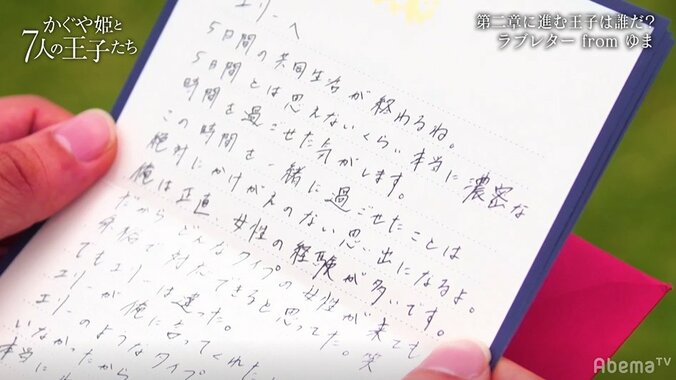 かぐや姫と
7人の王子たち
第二章に進む王子は誰だ?
ラブレター from ゆま
エリーへ
5日間の共同生活が終わるね。
5日間とは思えないくらい本当に濃密な
時間を過ごせた気がします。
この時間を一緒に過ごせたことは
絶対にかけがえのない思い出になるよ。
俺は正直、女性の経験が多いです。
だからどんなタイプの女性が来ても
対応できると思ってた。笑
でもエリーは違った。
エリーが俺に言ってくれた
いなかったから
本当に
AbemaTV